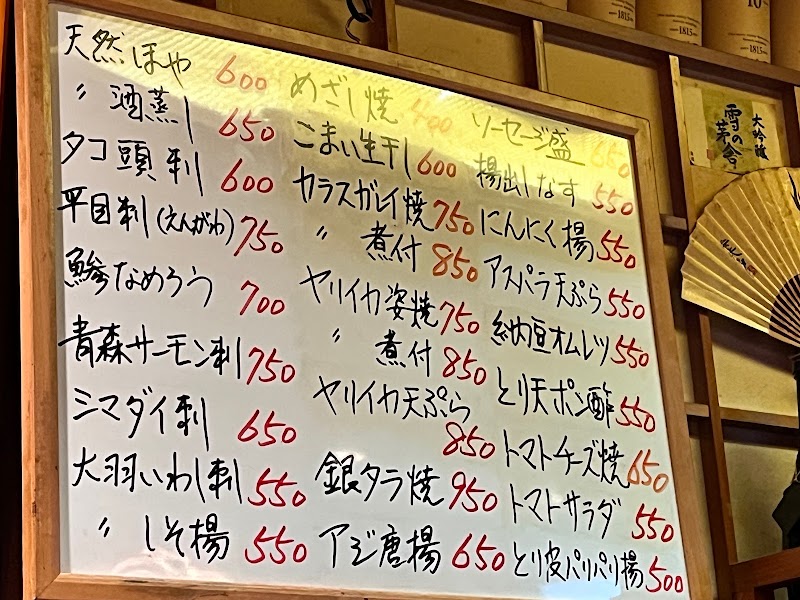 天然ほや 600
〃 酒蒸し 650
タコ頭刺 600
平目刺(えんがわ) 750
鯵なめろう 700
青森サーモン刺 750
シマダイ刺 650
大羽いわし刺 550
〃 しそ揚 550
めざし焼 400
こまい生干し 600
カラスガレイ焼 750
〃 煮付 850
ヤリイカ姿焼 750
〃 煮付 850
ヤリイカ天ぷら
850
銀タラ焼 950
アジ唐揚 650
ソーセージ盛 650
揚出しなす 550
にんにく揚 550
アスパラ天ぷら 550
納豆オムレツ 550
とり天ポン酢 550
トマトチーズ焼 650
トマトサラダ 550
とり皮パリパリ揚 500
大吟醸
雪の茅舎
1815
1815
1815
10